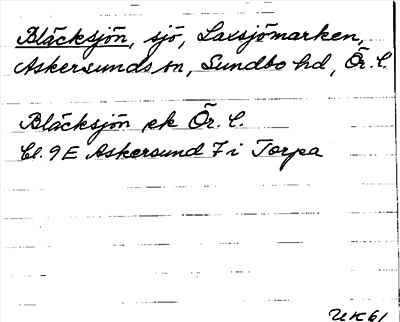 Bläcksjön, sjö, Laxsjömarken,
Askersunds sn, Sundbo hd, Ör. l.
Bläcksjön ek Ör. l.
Bl. 9 E Askersund 7 i Torpa
UK 61